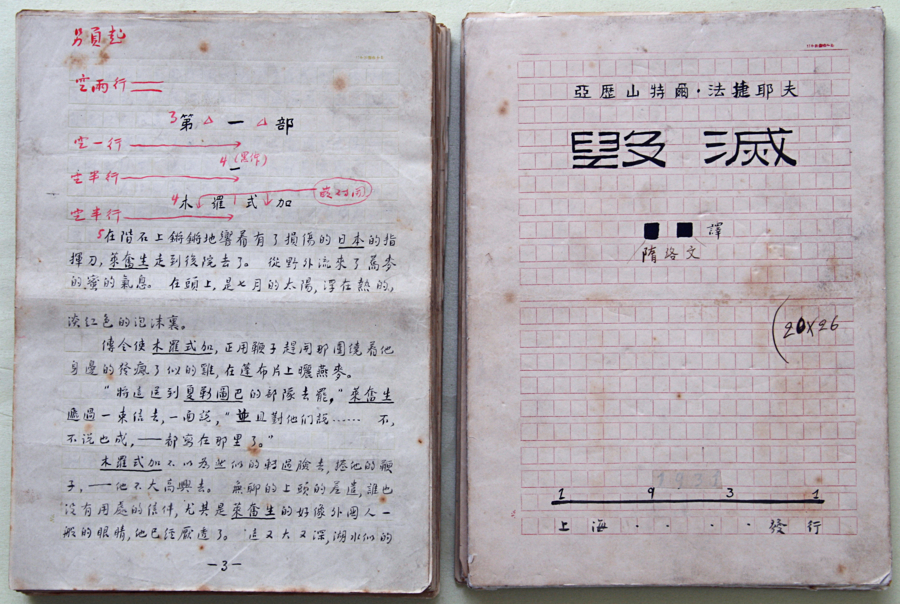 另頁起
空兩行
3第 一 部
空一行
4
(黑体)
一
空半行
4木 羅 式 加
空半行
5在階石上鏘鏘地響着有了損傷的日本的指
揮刀,萊奮生走到後院去了。 從野外流來了蕎麥
的蜜的氣息。 在頭上,是七月的太陽,浮在熱的,
淡紅色的泡沫裏。
傳令使木羅式加,正用鞭子趕開那圍繞着他
身邊的發瘋了似的雞,在蓬布片上曬燕麥。
“將這送到夏勒圖巴的部隊去罷,”萊奮生
遞過一束信去,一面說,“並且對他們說…… 不,
不說也成,——都寫在那里了。”
木羅式加不以為然似的轉過臉去,捲他的鞭
子,——他不大高興去。 無聊的上頭的差遣,誰也
沒有用處的信件,尤其是萊奮生的好像外國人一
般的眼睛,他已經厭透了。 這又大又深,湖水似的
—3—
亞歷山特爾·法捷耶夫
毀滅
■ ■ 譯
隋洛文
(20×26
1 9 3 1
上海····發行